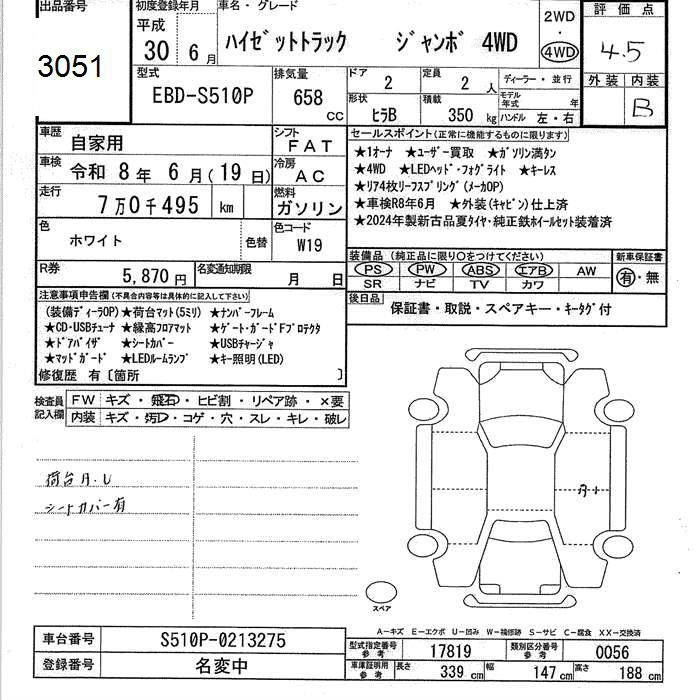 出品番号
3051
初度登録年月
平成
30年 6月
車名・グレード
ハイゼットトラック ジャンボ 4WD
2WD
・
4WD
評価点
4.5
外装 内装
B
型式
EBD-S510P
排気量
658
CC
ドア
2
定員
2人
形状
ヒラB
積載
350 kg
ディーラー・並行
モデル年式 年
ハンドル 左・右
車歴
自家用
シフト
FAT
車検
令和 8年 6月(19日)
冷房
AC
走行
7万0千495 km
燃料
ガソリン
色
ホワイト
色替
色コード
W19
R券
5,870円
名変通知期限
月 日
セールスポイント(正常に機能するものに限ります)
★1オーナ ★ユーザー買取 ★ガソリン満タン
★4WD ★LEDヘッド・フォグライト ★キーレス
★リア4枚リーフスプリング(メーカOP)
★車検R8年6月 ★外装(キャビン)仕上済
★2024年製新古品夏タイヤ・純正鉄ホイールセット装着済
装備品(純正品に限り○をつけてください)
PS PW ABS エアB AW
SR ナビ TV カワ
新車保証書
有・無
後日品
保証書・取説・スペアキー・キータグ付
注意事項申告欄(不具合内容等は具体的に記入して下さい)
(装備ディーラOP)★荷台マット(5ミリ) ★ナンバーフレーム
★CD・USBチューナ ★縁高フロアマット ★ゲート・ガードFプロテクタ
★ドアバイザ ★シートカバー ★USBチャージャ
★マッドガード ★LEDルームランプ ★キー照明(LED)
修復歴 有〔箇所 〕
検査員記入欄
FW キズ・飛石・ヒビ割・リペア跡・×要
内装 キズ・汚レ・コゲ・穴・スレ・キレ・破レ
荷台A.U
シートカバー有
スペア
A-キズ E-エクボ U-凹み W-補修跡 S-サビ C-腐食 XX-交換済
車台番号
S510P-0213275
登録番号
名変中
型式指定番号 参考
17819
類別区分番号 参考
0056
車庫証明用 参考
長さ 339 cm 幅 147 cm 高さ 188 cm